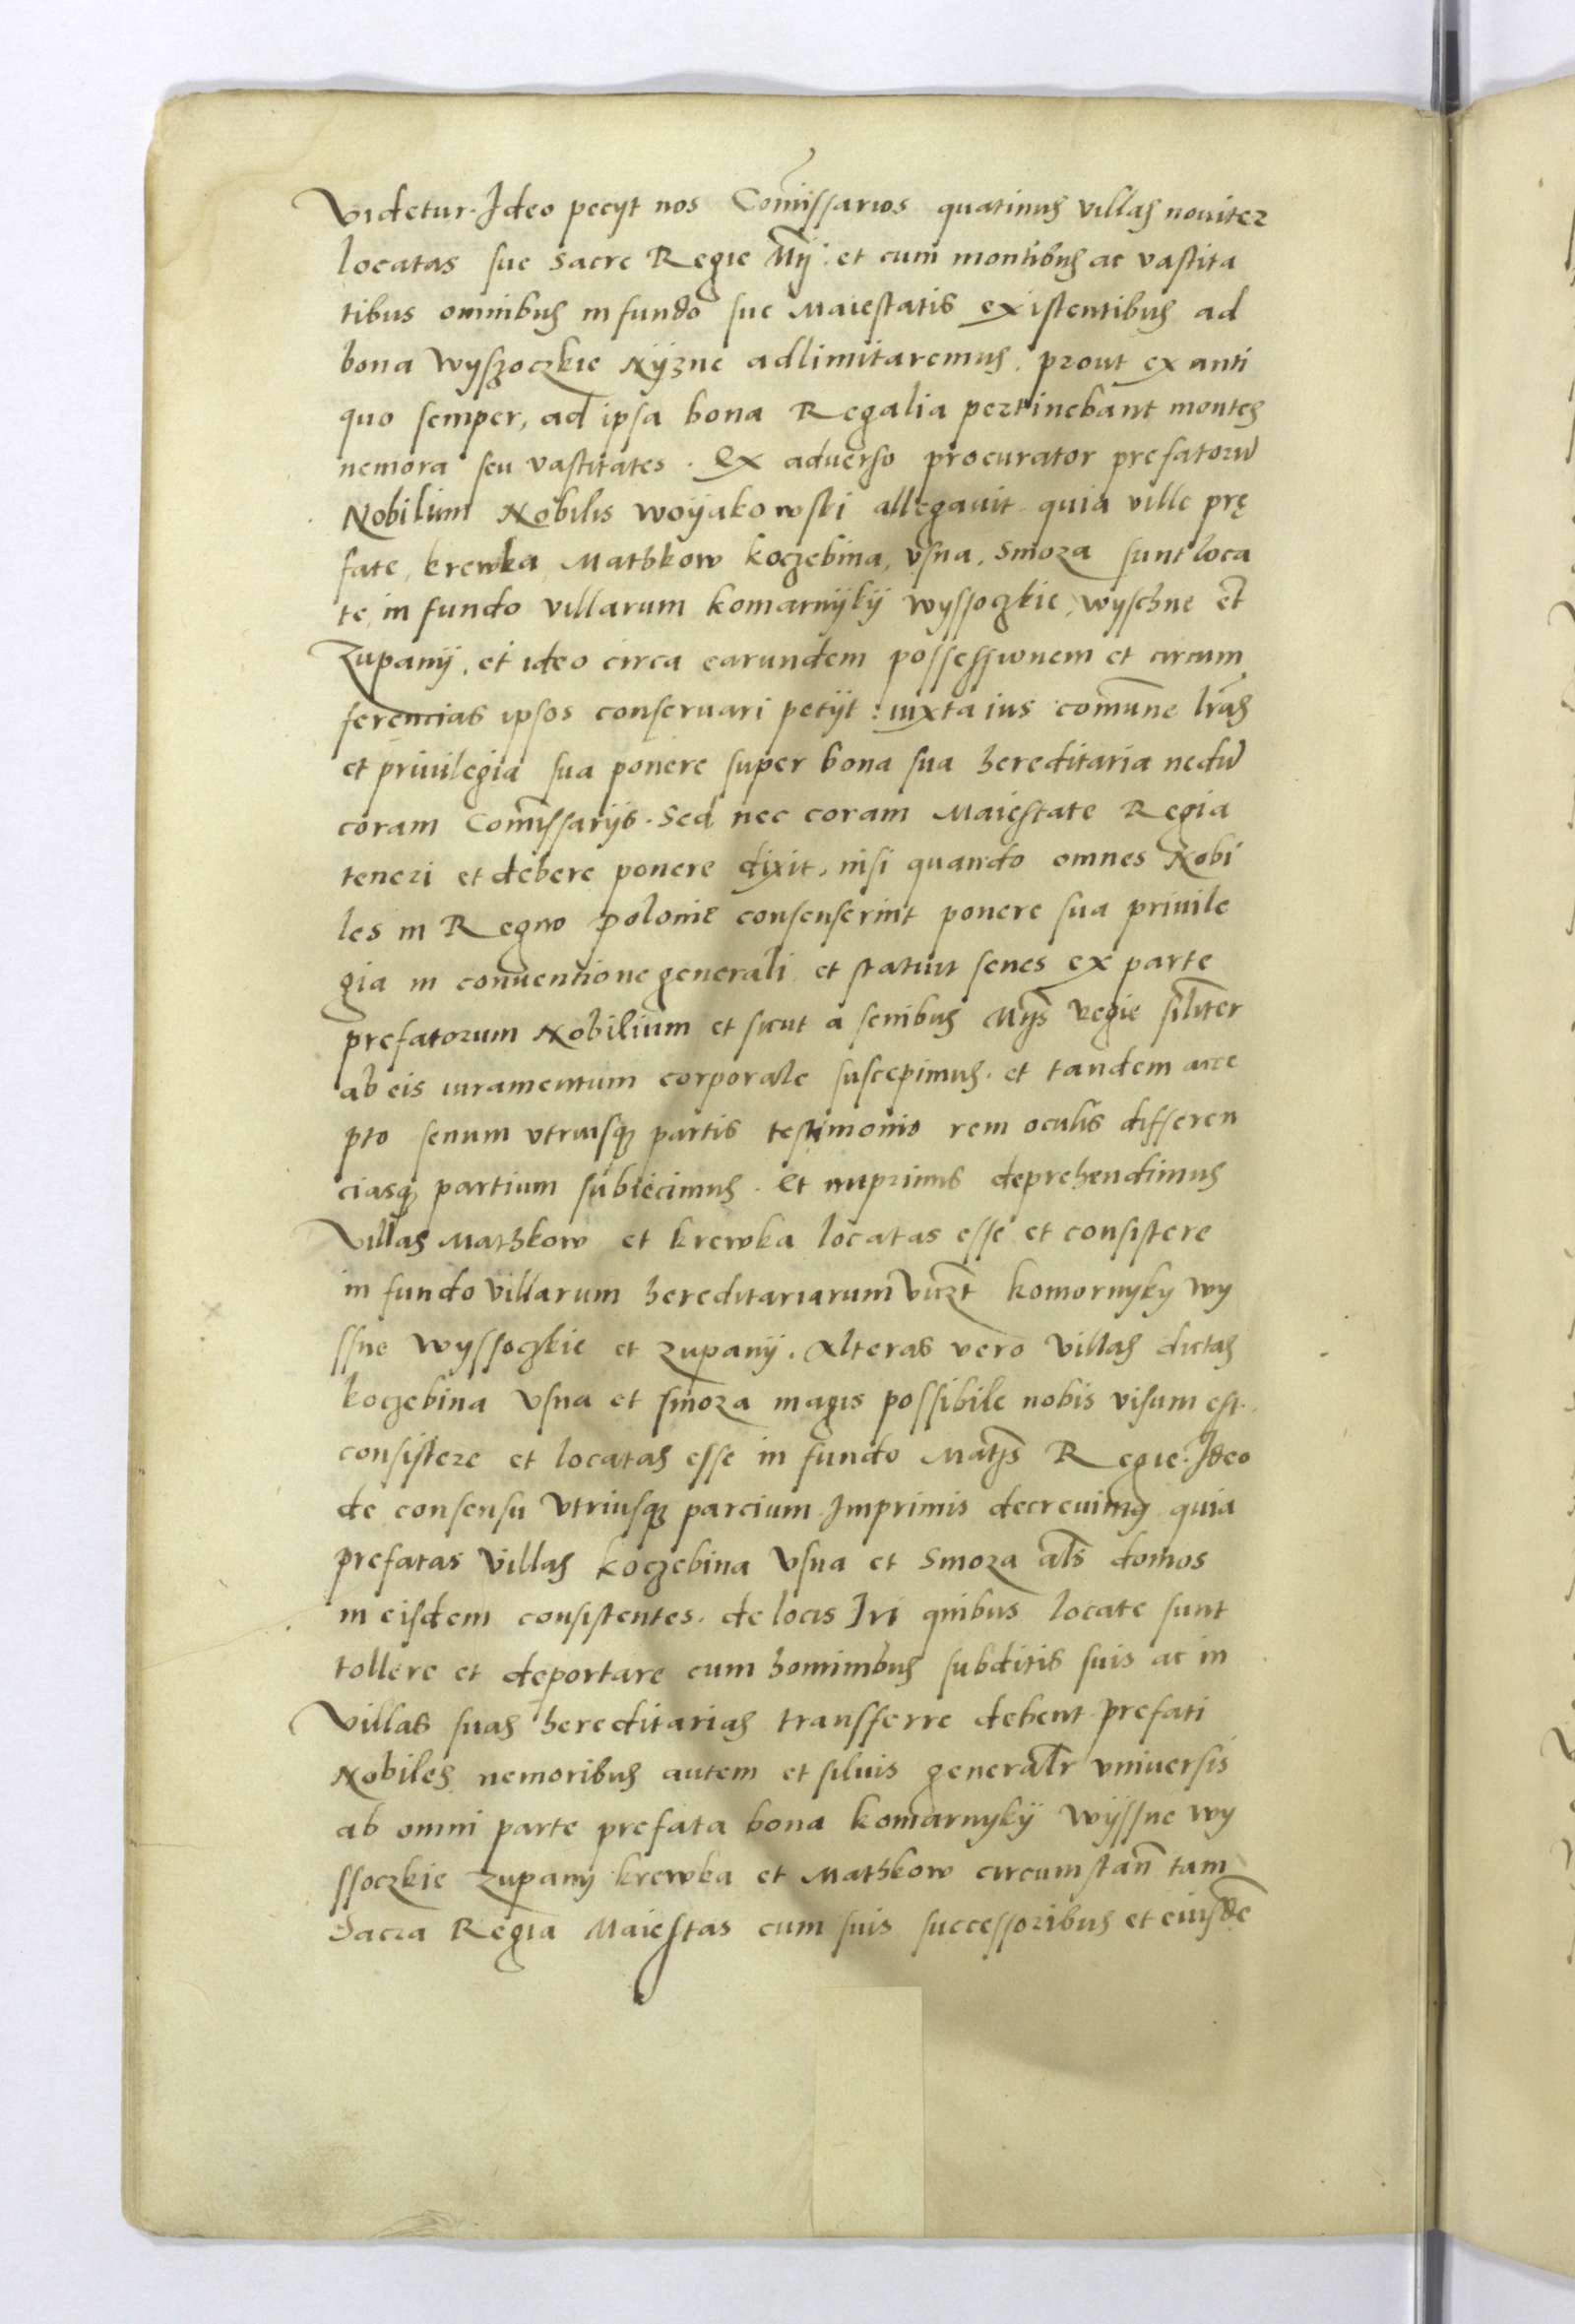 Videtur. Ideo pecyt nos Com̄issarios quatinus villas noviter
locatas sue sacre Regie Mtj. et cum montibus ac vastita
tibus omnibus in fundo sue Maiestatis existentibus ad
bona Wyszoczkie Nyzne adlimitaremus, prout ex anti
quo semper, ad ipsa bona Regalia pertinebant montes
nemora seu vastitates. Ex adverso procurator prefatorū
Nobilium Nobilis Woyakowski allegavit quia ville prę
fate, krewka Mathkow koczebina, vsna, Smoza sunt loca
te, in fundo villarum komarnÿkÿ Wyssoczkie, wyschne et
Zupanij, et ideo circa earundem possessionem et circum
ferencias ipsos conservari petijt: iuxta ius com̄une lr̄as
et privilegia sua ponere super bona sua hereditaria nedū
coram Com̄issarijs. Sed nec coram Maiestate Regia
teneri et debere ponere dixit, nisi quando omnes Nobi
les in Regno polonie consenserint ponere sua privile
gia in conventione generali et statuit senes ex parte
prefatorum Nobilium et sicut a senibus Mtjs regie sil̄iter
ab eis iuramentum corporale suscepimus. et tandem acce
pto senum vtriusqꝫ partis testimonio rem oculis differen
ciasqꝫ partium subiecimus. Et inprimis deprehendimus
Villas Mathkow et krewka locatas esse et consistere
in fundo villarum hereditariarum vidꝫt komornyky wy
ssne Wyssoczkie et Zupanij. Alteras vero villas dictas
koczebina vsna et smoza magis possibile nobis visum est.
consistere et locatas esse in fundo Matjs Regie. Ideo
de consensu vtriusqꝫ parcium Imprimis decrevimus quia
prefatas villas koczebina Vsna et Smoza al̄s domos
in eisdem consistentes. de locis Iri quibus locate sunt
tollere et deportare cum hominibus subditis suis ac in
Villas suas hereditarias transferre debent prefati
Nobiles nemoribus autem et siluis general̄r vniuersis
ab omni parte prefata bona komarnykÿ Wÿssne wy
ssoczkie Zupanij krewka et Mathkow circumstan̄ tam
Sacra Regia Maiestas cum suis successoribus et eiusdē